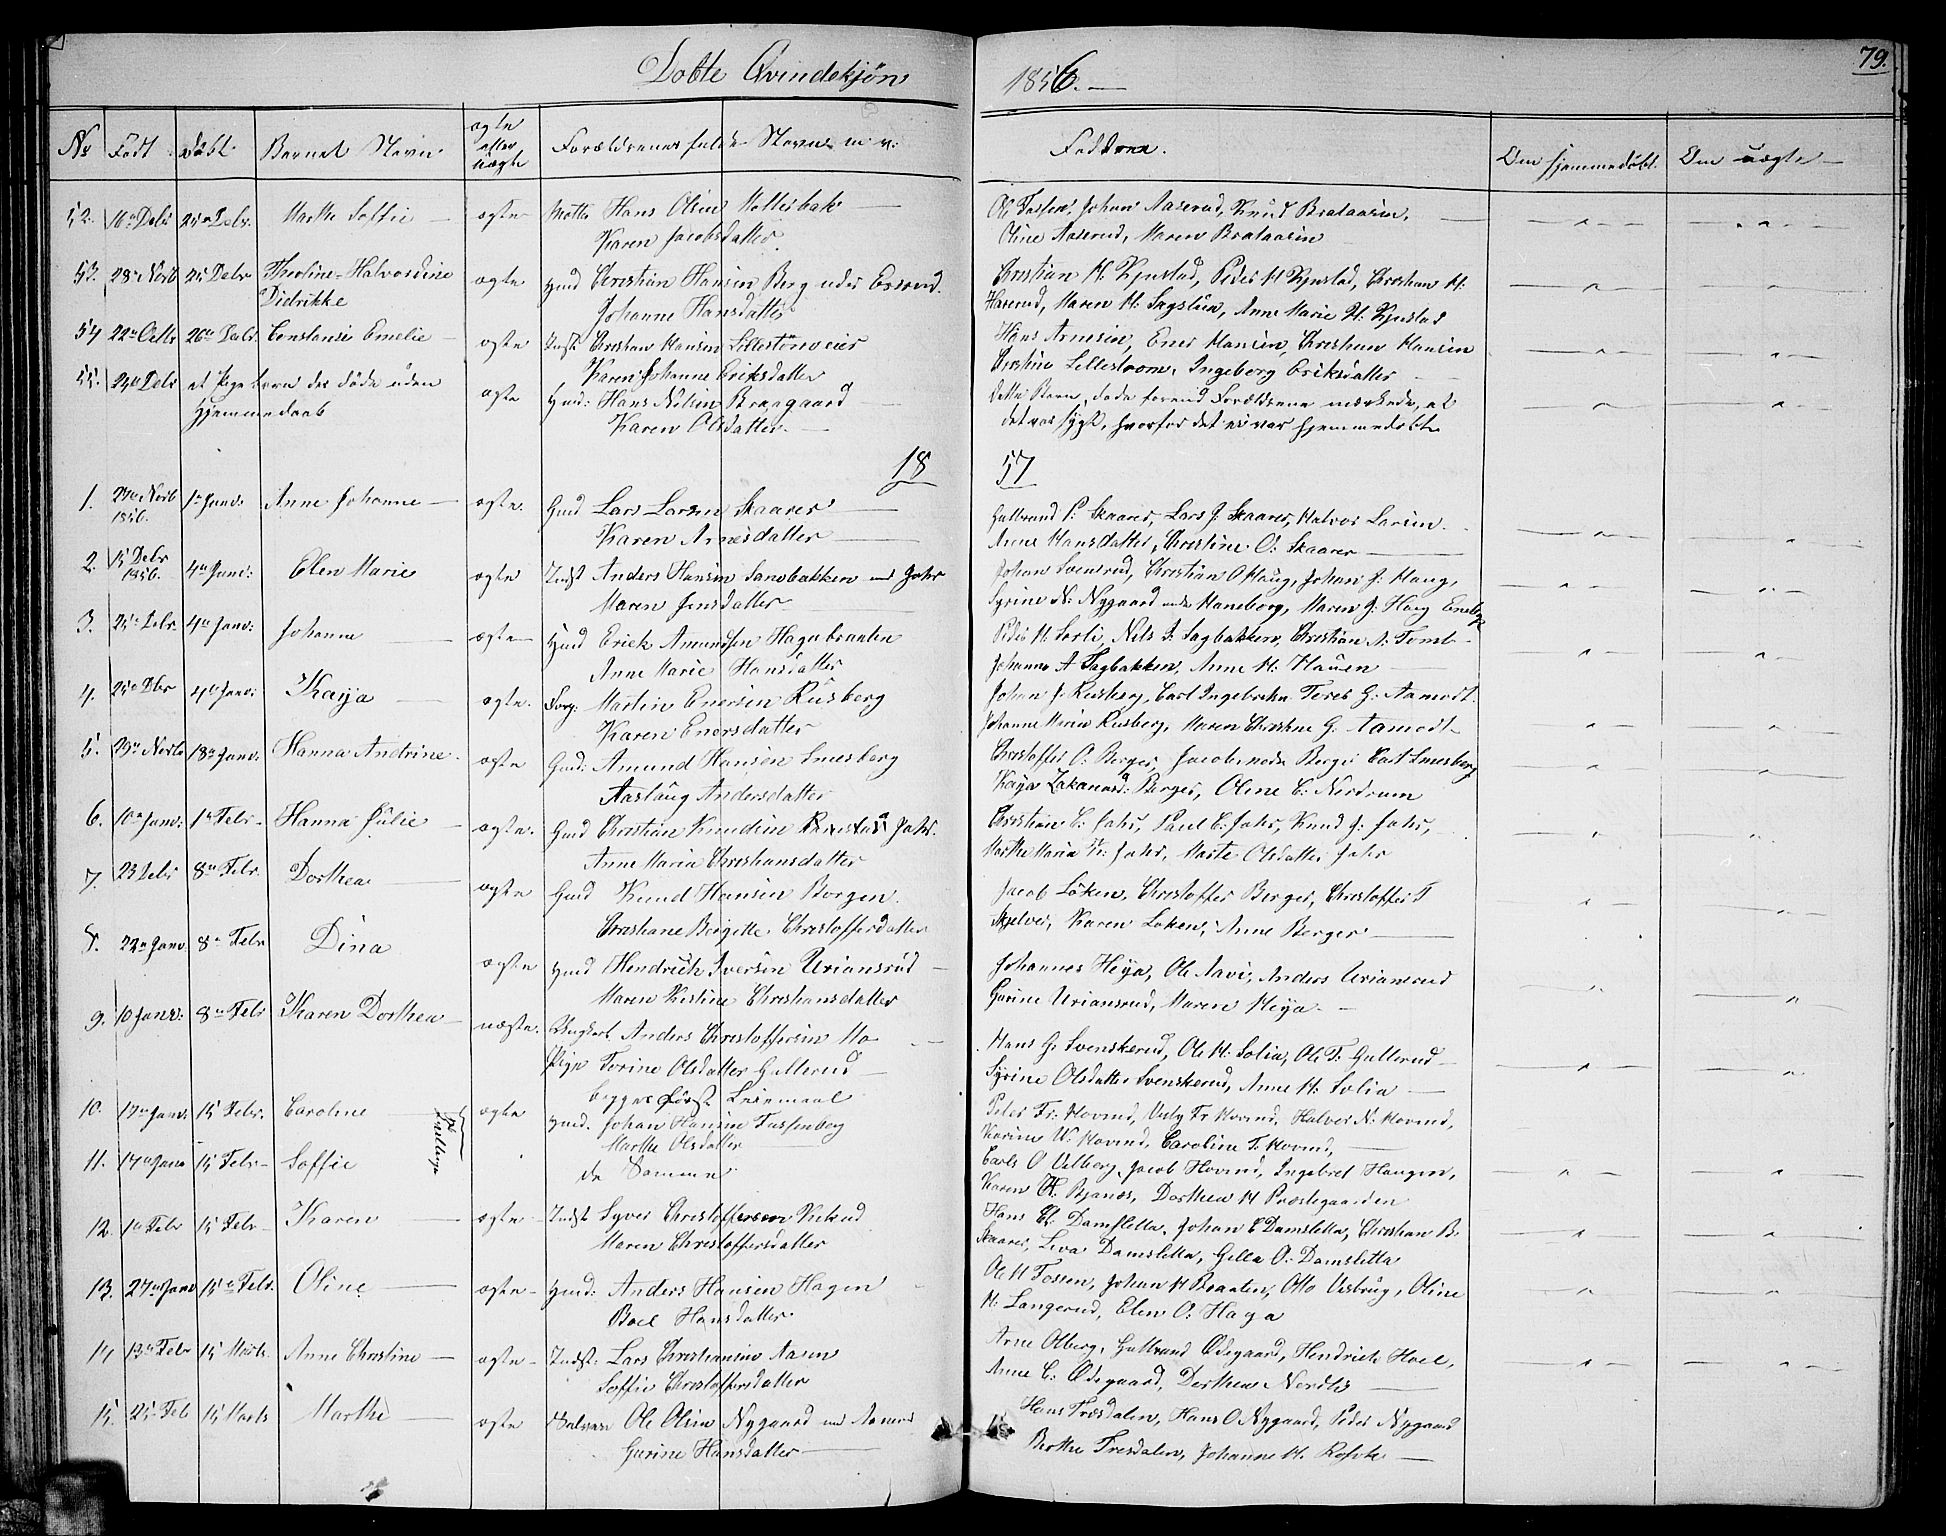 79.
Døbte Qvindekjøn
1856.
No Født Døbt Barnets Navn ægte eller uægte Forældrenes fulde Navne m. v.
Faddrene. Om hjemmedøbt. Om uægte
52. 16de Debr 25de Debr. Marthe Soffie ægte Hans Olsen
Karen Jacobsdatter
Ole Johan Aaserud, Knud Brataasen,
Oline Aaserud, Maren Brataasen
53. 28de Novb 25 Debr Theoline Halvordine ægte Hmd Christian Hansen Berg under
Didrikke
Johanne Hansdatter
Christian H. Kjustad, Peder H Kjustad, Christian H:
Harerud, Maren H. Anne Marie H. Kjustad
54 22de Octbr 26de Debr. Constanse Emelie ægte Indst Christian Hansen Lillestrømeier
Karen Johanne Eriksdatter
Hans Arnesen, Ener Hansen, Christian Hansen
Lillestrøm, Ingeborg Eriksdatter
55. Debr et Pigebarn der døde uden ægte Hmd: Hans Nilsen Braagaard
Hjemmedaab
Karen Olsdatter.
Dette Barn døde forend Forældrene mærkede, at
det var sygt, hvorfor det ei var hjemmedøbt
18 57
1. Novb 1ste Janv: Anne Johanne ægte. Gmd Lars Larsen Skaarer
1856.
Karen Arnesdatter
Gulbrand P: Skaarer, Lars J. Skaarer, Halvor Larsen.
Anne Hansdatter, Christine O. Skaarer
2. 15 Debr 4de Janv: Elen Marie ægte Indst Anders Hansen Sandbakken
1856.
Maren Jensdatter
Johan Svenserud, Christian O Haug, Johan J: Haug,
Syrine N: Nygaard under Haneborg, Maren J: Haug
3. 25de Debr 4de Janv: Johanne ægte Hmd Erick Amundsen Hagabraaten
Anne Marie Hansdatter
Peder H. Sørli, Nils J. Sagbakken, Christian A: Tomt
Johanne A Sagbakken, Anne H. Hauen
4. 25de Dbr 4de Janv: Kaija ægte. Forp: Martin Enersen Rusberg
Karen Enersdatter
Johan J. Rusberg, Carl Ingebretsen Teres G: Aamodt
Johanne Maria Rusberg, Maren Christine G. Aamodt
5. 29de Novbr 18de Janv. Hanna Andrine ægte Gmd: Amund Hansen Smesberg
Aaslaug Andersdatter
Christoffer O. Berger, Jacob Berger Carl Smesberg
Kaya Berger, Oline C. Nordrum
6. 10de Janv: 1ste Febr. Hanna Julie ægte. Gmd Christian Knudsen Jahr.
Anne Maria Christiansdatter
Christian C. Jahr, Paul C. Jahr, Knud J. Jahr,
Marthe Maria K: Jahr, Marte Olsdatter Jahr
7. 23 Debr 8de Febr. Dorthea ægte Gmd Knud Hansen Borgen.
Christiane Birgitte Christoffersdatter
Jacob Løken, Christoffer Berger, Christoffer T
Skjelver, Karen Løken, Anne Berger
8. 22de Janv. 8de Febr Dina ægte Hmd Hendrich Iversen Uriansrud
Maren Kirstine Christiansdatter
Johannes Heija, Ole Aavi, Anders Uriansrud
Gurine Uriansrud, Maren Heija.
9. 10 Janv: 8de Febr Karen Dorthea uægte. Ungkarl Anders Christoffersen Mo
Pige Torine Olsdatter Gullerud
begges første Leiemaal
Hans G. Svenskerud, Ole H: Solia, Ole T: Gullerud
Syrine Olsdatter Svenskerud, Anne H. Solia
10. 17de Janv. 15 Febr. Caroline Tvillinge ægte Hmd. Johan Hansen Tussenberg
Marthe Olsdatter
Peder Fr: Hovind, Fr Hovind, Halvor N. Hovind,
Karine W. Hovind, Caroline T. Hovind,
11. 17de Janv 15 Febr Soffie de Samme
Carl O Vilberg, Jacob Hovind, Ingebret Haugen,
Karen H. Bjanæs, Dorthea H Præstegaarden
12. 1ste Febr 15 Febr Karen ægte Indst Syver Christoffersen
Maren Christoffersdatter
Hans C. Damsletta, Johan C Damsletta, Christian B.
Skaarer, Leva Damsletta, Gella O: Damsletta
13. 27de Janv 15de Febr. Oline ægte Hmd: Anders Hansen Hagen
Boel Hansdatter
Ole H Fossen, Johan H Braaten, Otto Visbrug, Oline
H: Langerud, Elen O: Haga
14 13de Febr 15 Marts Anne Christine ægte Indst: Lars Christiansen Aasen
Soffie Christoffersdatter
Arne Olberg, Gulbrand Ødegaard, Hendrich Hoel,
Anne C. Ødegaard, Dorthea Nordli
15. 25 Feb 15 Marts Marthe ægte Ole Olsen Nygaard
Gurine Hansdatter
Hans Træsdalen, Hans O Nygaard, Peder Nygaard
Berthe Tresdalen, Johanne H.